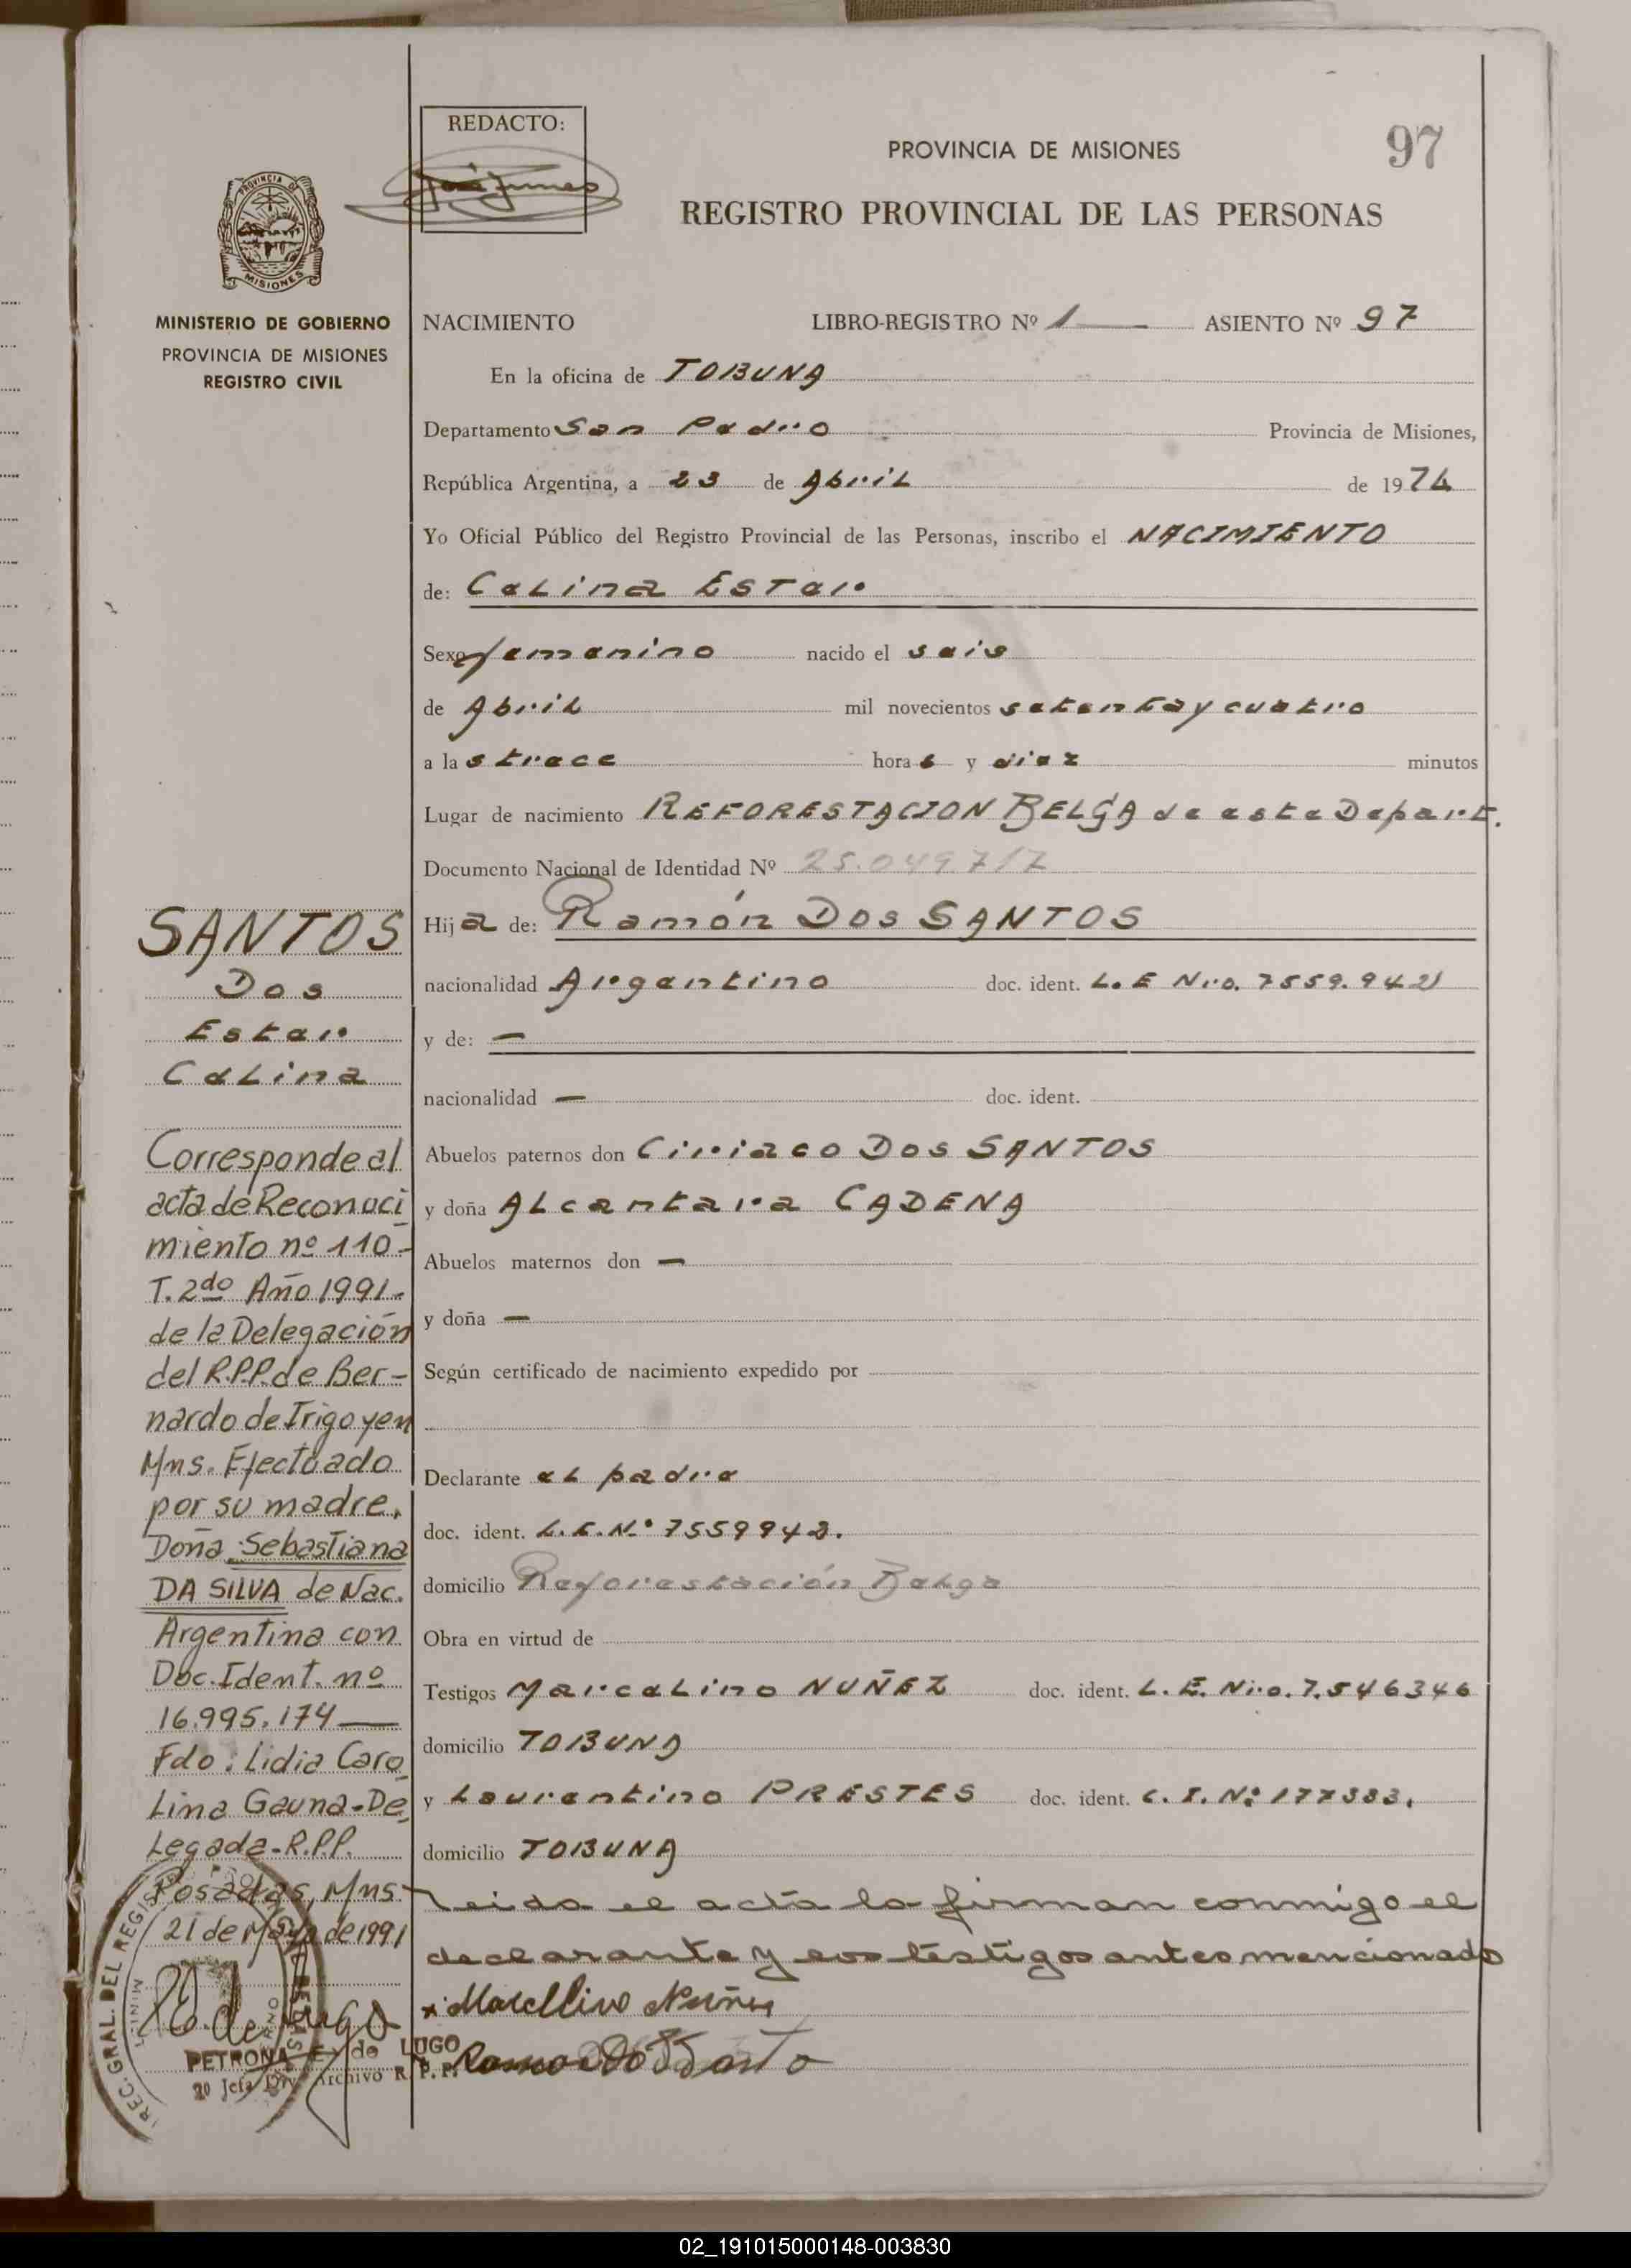 97
REDACTO:
PROVINCIA DE MISIONES
REGISTRO PROVINCIAL DE LAS PERSONAS
PROVINCIA DE
MISIONES
MINISTERIO DE GOBIERNO
PROVINCIA DE MISIONES
REGISTRO CIVIL
NACIMIENTO LIBRO-REGISTRO Nº 1 ASIENTO Nº 97
En la oficina de TOBUNA
Departamento San Pedro Provincia de Misiones,
República Argentina, a 23 de Abril de 1974
Yo Oficial Público del Registro Provincial de las Personas, inscribo el NACIMIENTO
de: CeLina ESTer
Sexo femenino nacido el seis
de Abril mil novecientos setenta y cuatro
a las trece horas y diez minutos
Lugar de nacimiento REFORESTACION BELGA de este Depart.
Documento Nacional de Identidad Nº 25.049.717
Hija de: Ramón Dos SANTOS
nacionalidad Argentino doc. ident. L. E Nro. 7559.942
y de: —
nacionalidad — doc. ident.
Abuelos paternos don Ciriaco Dos SANTOS
y doña ALcantara CADENA
Abuelos maternos don —
y doña —
Según certificado de nacimiento expedido por
Declarante eL padre
doc. ident. L.E.N.º 7559942.
domicilio Reforestación Belga
Obra en virtud de
Testigos MarceLino NUÑEZ doc. ident. L. E. Nro. 7.546346
domicilio TOBUNA
y Laurentino PRESTES doc. ident. C. I. Nº 177383.
domicilio TOBUNA
Leida el acta la firman conmigo el
declarante y los testigos antes mencionado
Marcellino Nuñes
SANTOS
Dos
Ester
CeLina
Corresponde al
acta de Reconoci
miento nº 110-
T. 2do Año 1991.-
de la Delegación
del R.P.P. de Ber-
nardo de Irigoyen
Mns. Efectuado
por su madre,
Doña Sebastiana
DA SILVA de Nac.
Argentina con
Doc. Ident. nº
16.995.174—
Fdo: Lidia Caro
Lina Gauna-De
Legada-R.P.P.
Posadas, Mns.
21 de Mayo de 1991
REC. GRAL. DEL REGIS
PETRONA E. de LUGO
Jefa Div. Archivo R.P.P.
02_191015000148-003830